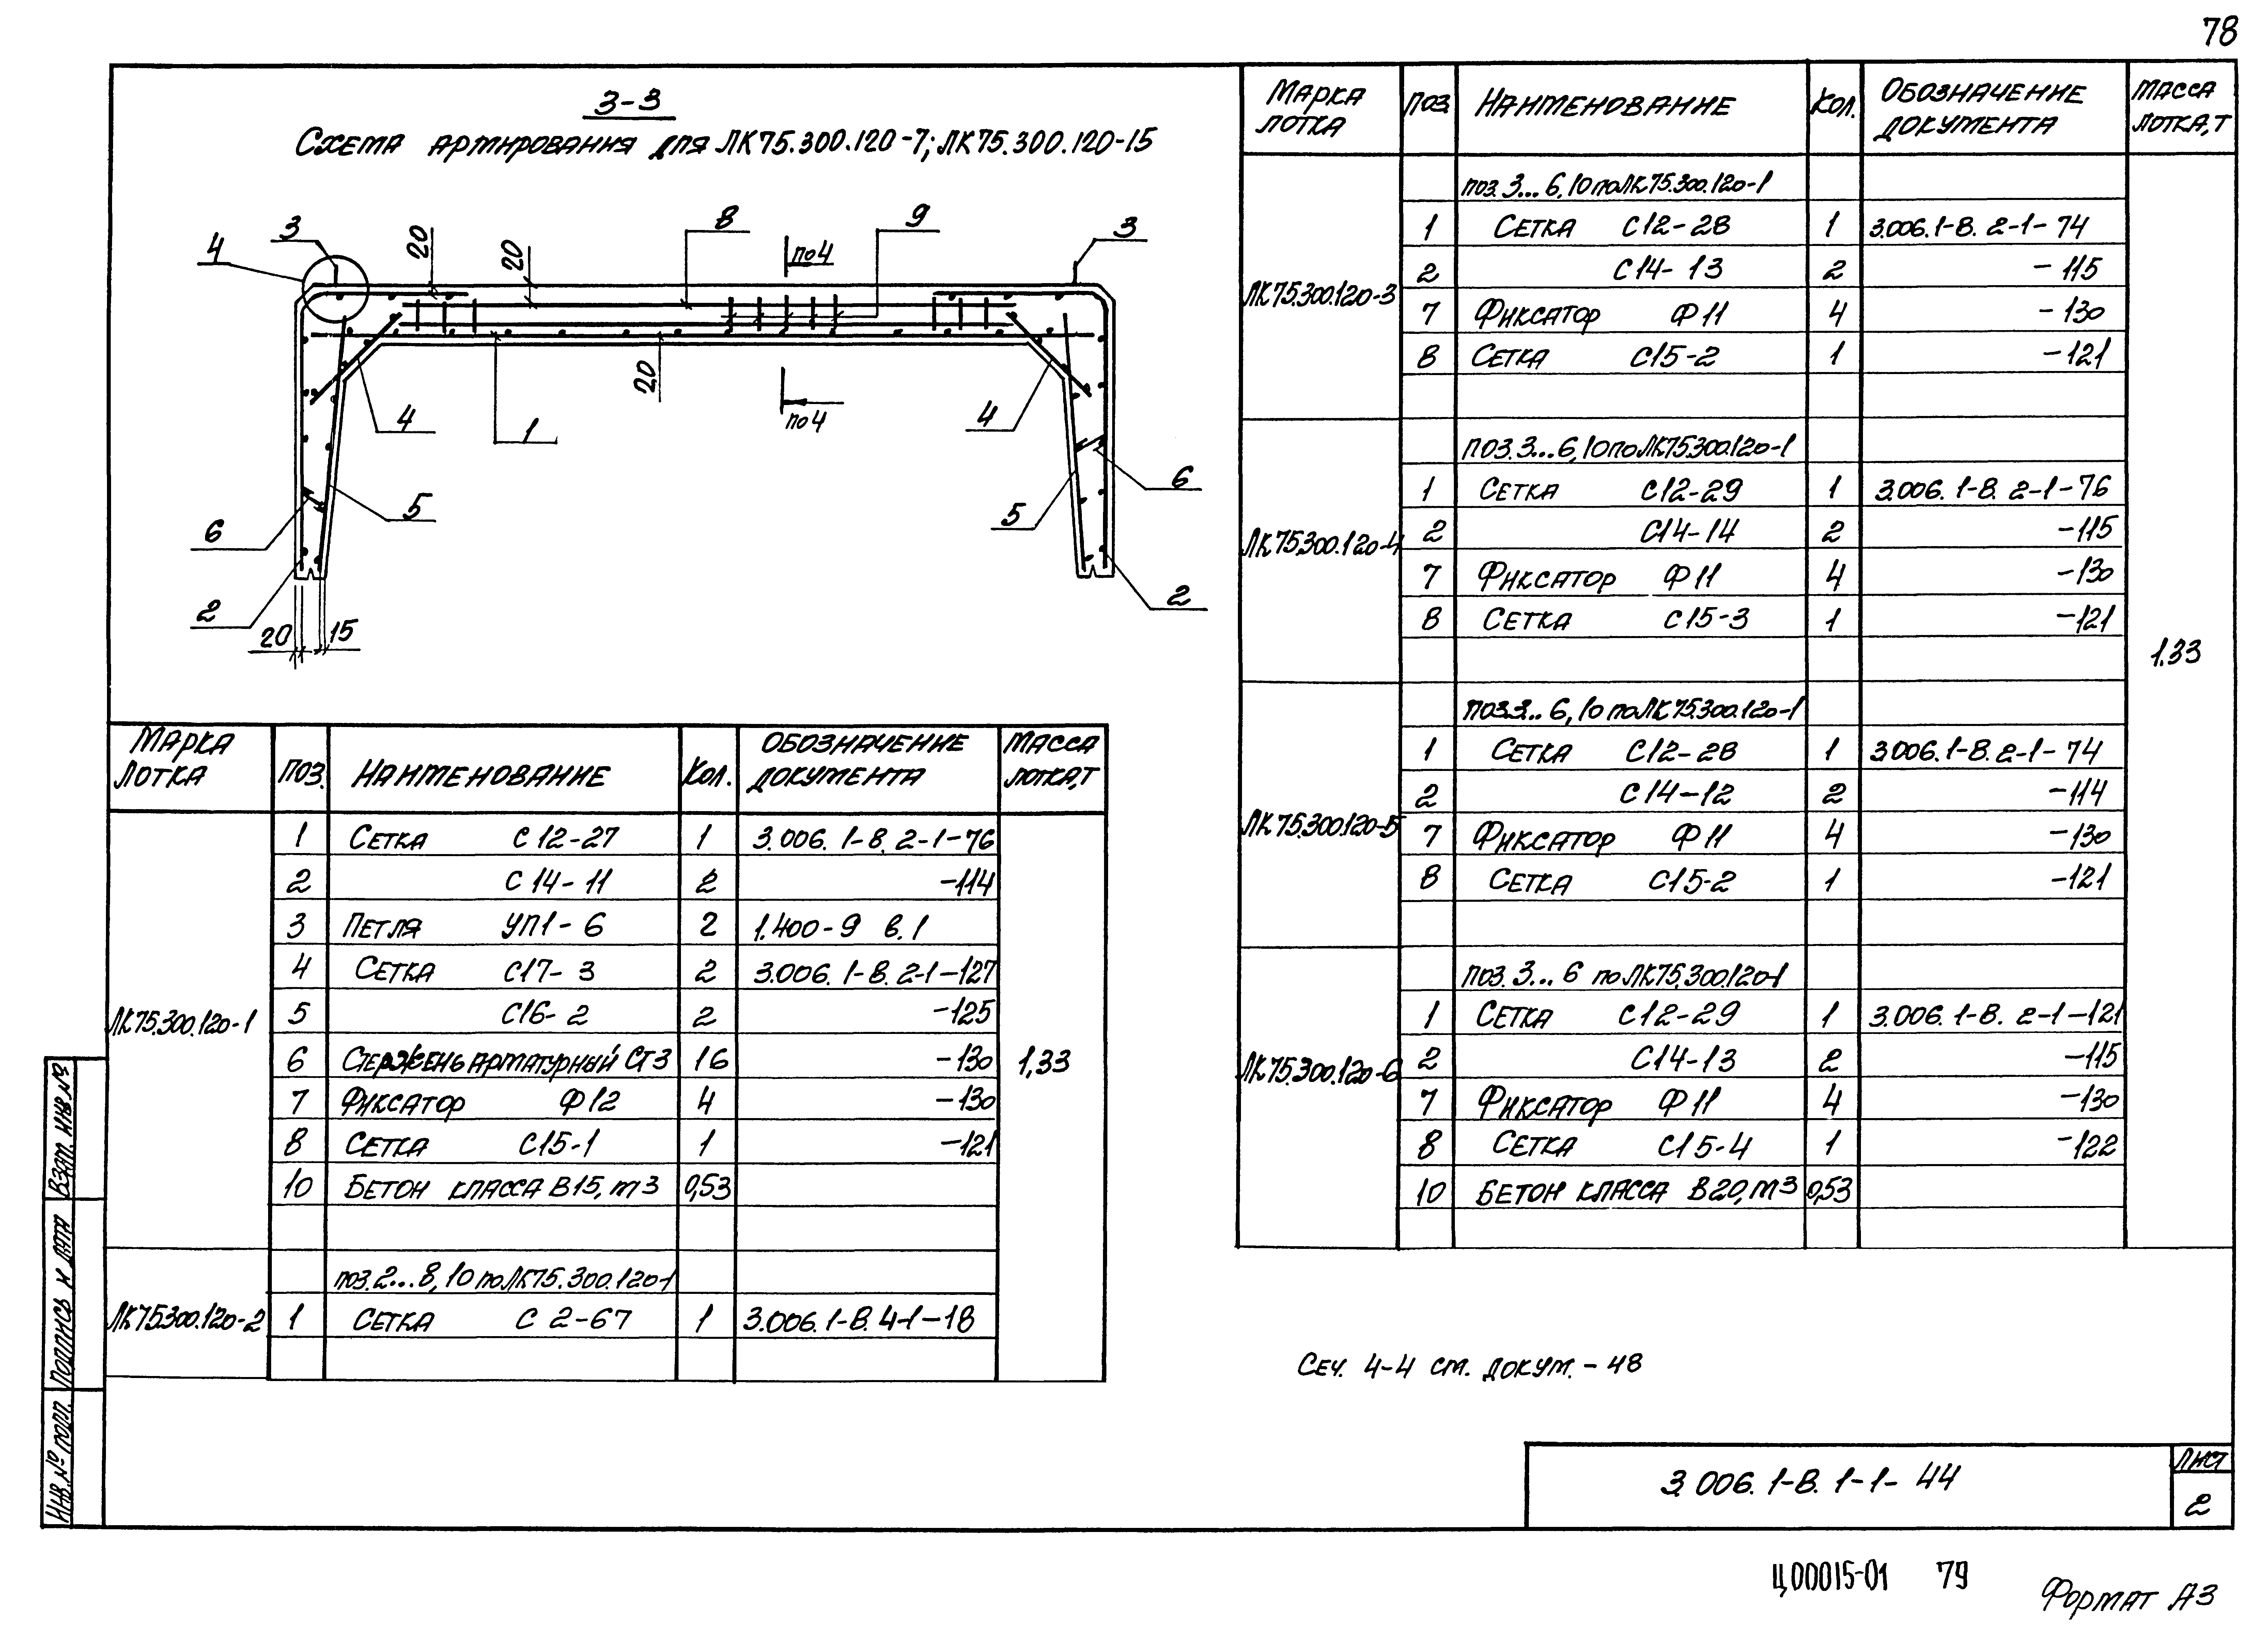 78
3-3
Схема армирования для ЛК75.300.120-7; ЛК75.300.120-15
4 3 20 20 8 по4 9 3
20
4 1 по4 4
6 5 5 6
2 2
20 15
Марка лотка Поз. Наименование Кол. Обозначение документа Масса лотка, т
ЛК75.300.120-1 1,33
1 Сетка С12-27 1 3.006.1-8.2-1-76
2 С14-11 2 -114
3 Петля УП1-6 2 1.400-9 в.1
4 Сетка С17-3 2 3.006.1-8.2-1-127
5 С16-2 2 -125
6 Стержень арматурный СТ3 16 -130
7 Фиксатор Ф12 4 -130
8 Сетка С15-1 1 -121
10 Бетон класса В15, м3 0,53
ЛК75.300.120-2
поз. 2...8, 10 по ЛК75.300.120-1
1 Сетка С2-67 1 3.006.1-8.4-1-18
Марка лотка Поз. Наименование Кол. Обозначение документа Масса лотка, т
ЛК75.300.120-3
поз. 3...6, 10 по ЛК75.300.120-1
1 Сетка С12-28 1 3.006.1-8.2-1-74
2 С14-13 2 -115
7 Фиксатор Ф11 4 -130
8 Сетка С15-2 1 -121
ЛК75.300.120-4 1.33
поз. 3...6, 10 по ЛК75.300.120-1
1 Сетка С12-29 1 3.006.1-8.2-1-76
2 С14-14 2 -115
7 Фиксатор Ф11 4 -130
8 Сетка С15-3 1 -121
ЛК75.300.120-5
поз. 3...6, 10 по ЛК75.300.120-1
1 Сетка С12-28 1 3.006.1-8.2-1-74
2 С14-12 2 -114
7 Фиксатор Ф11 4 -130
8 Сетка С15-2 1 -121
ЛК75.300.120-6
поз. 3...6 по ЛК75.300.120-1
1 Сетка С12-29 1 3.006.1-8.2-1-121
2 С14-13 2 -115
7 Фиксатор Ф11 4 -130
8 Сетка С15-4 1 -122
10 Бетон класса В20, м3 0,53
Сеч. 4-4 см. докум. -48
Взам. инв №
Подпись и дата
Инв. № подл.
3.006.1-8.1-1-44
Лист
2
Ц00015-01 79
Формат А3